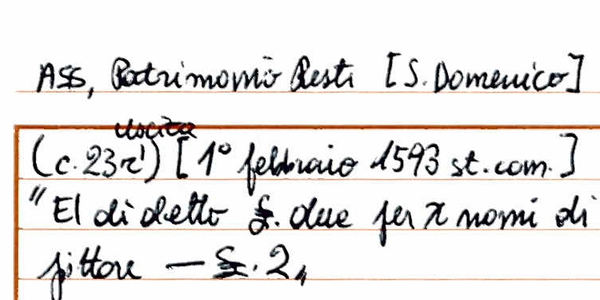 ASS, Patrimonio Resti [S. Domenico]
uscita
(c. 23r') [1° febbraio 1593 st. com.]
"El dì detto £. due per X nomi di
pittore — £. 2,